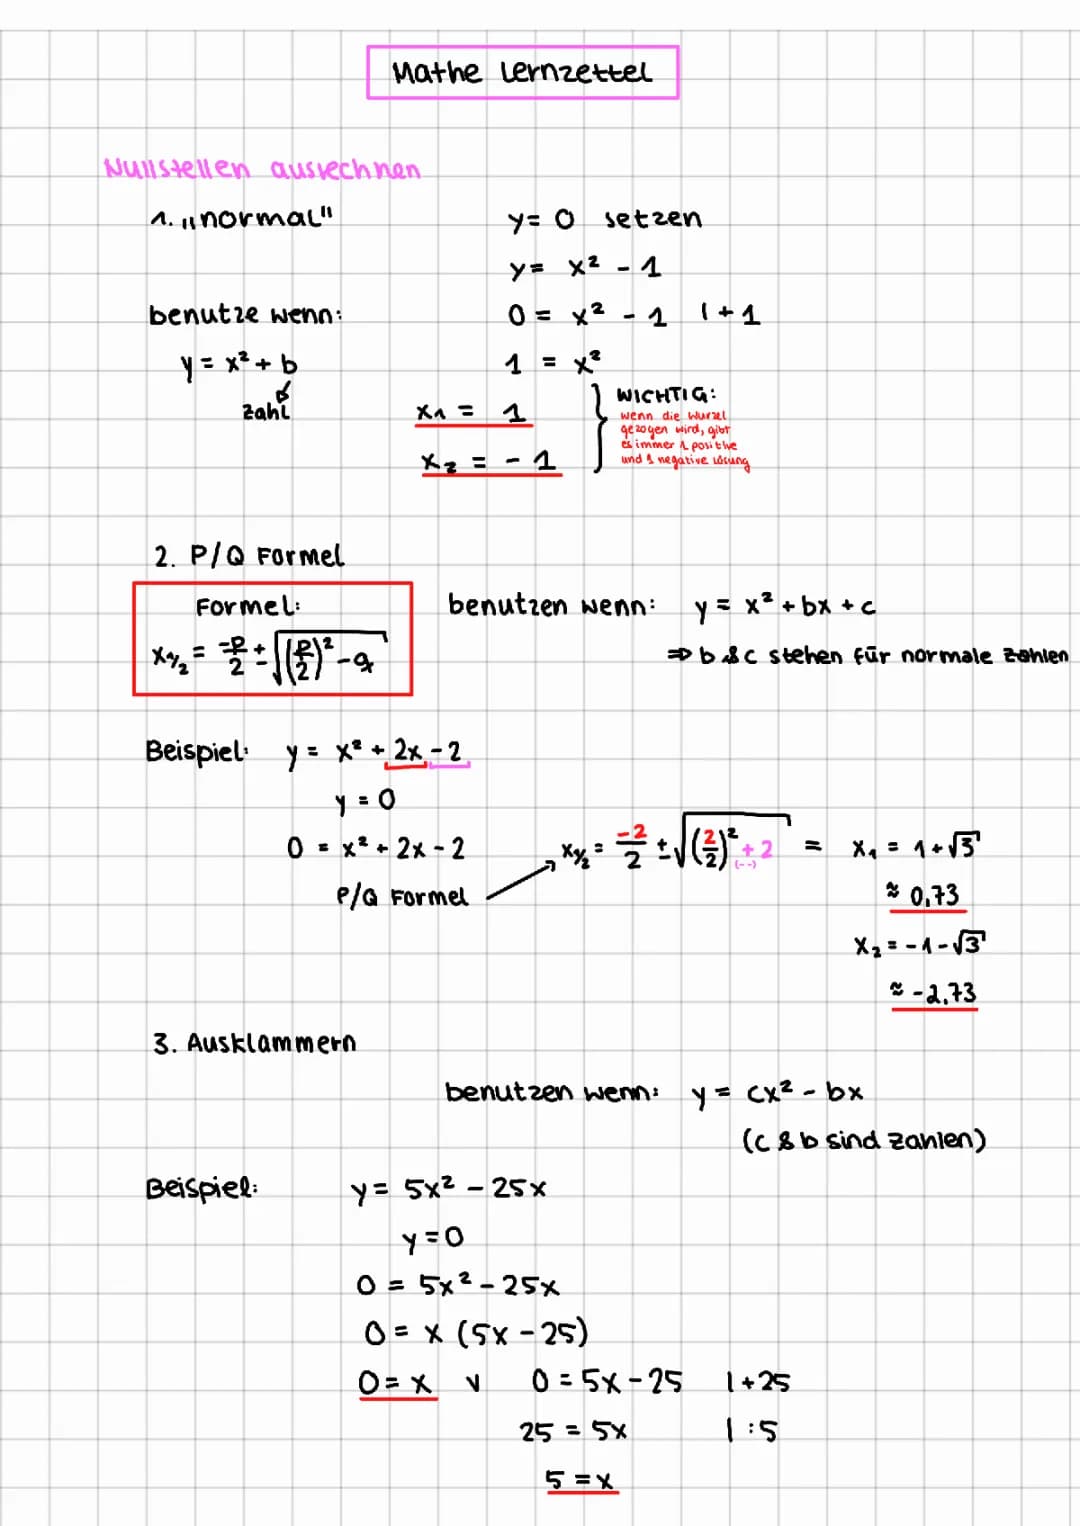 Mathe Lernzettel
Nullstellen ausrechnen
1. „normal"
y = 0 setzen
y = x² - 1
benutze wenn:
0 = x² - 1 | + 1
y = x² + b
1 = x²
zahl
x₁ = 1
x₂ = - 1
WICHTIG:
wenn die Wurzel
gezogen wird, gibt
es immer 1 positive
und 1 negative Lösung
2. P/Q Formel
Formel:
x₁/₂ = -p/2 ± √((p/2)² - q)
benutzen wenn: y = x² + bx + c
⇒ b & c stehen für normale Zahlen
Beispiel: y = x² + 2x - 2
y = 0
0 = x² + 2x - 2
P/Q Formel
x₁/₂ = -2/2 ± √((2/2)² + 2) = x₁ = 1 + √3
(--)
≈ 0,73
x₂ = - 1 - √3
≈ -2,73
3. Ausklammern
benutzen wenn: y = cx² - bx
(c & b sind Zahlen)
Beispiel: y = 5x² - 25x
y = 0
0 = 5x² - 25x
0 = x (5x - 25)
0 = x v 0 = 5x - 25 | + 25
25 = 5x | : 5
5 = x